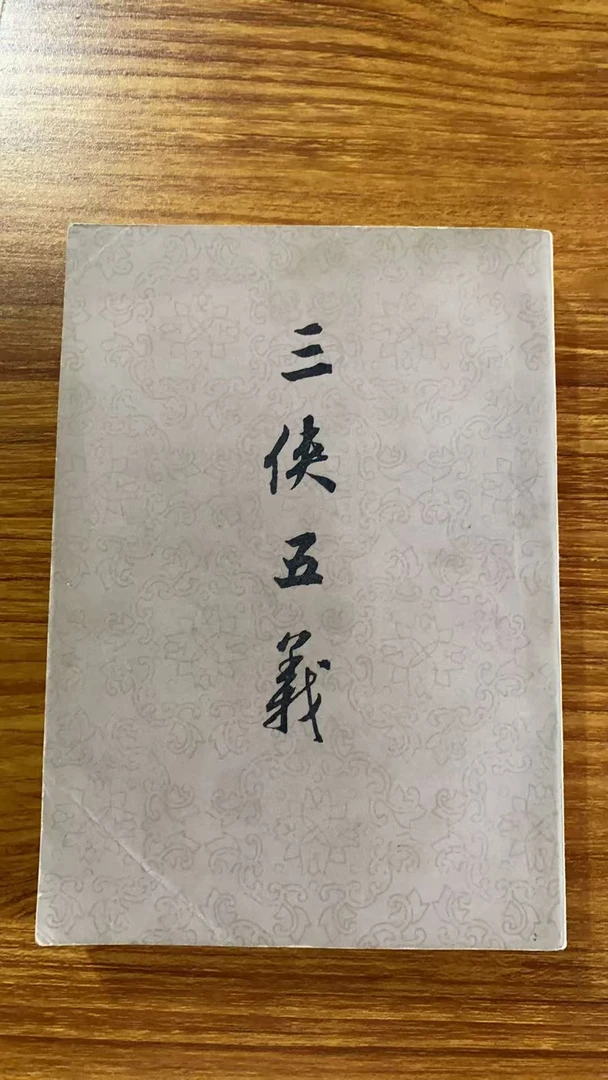 三侠五義